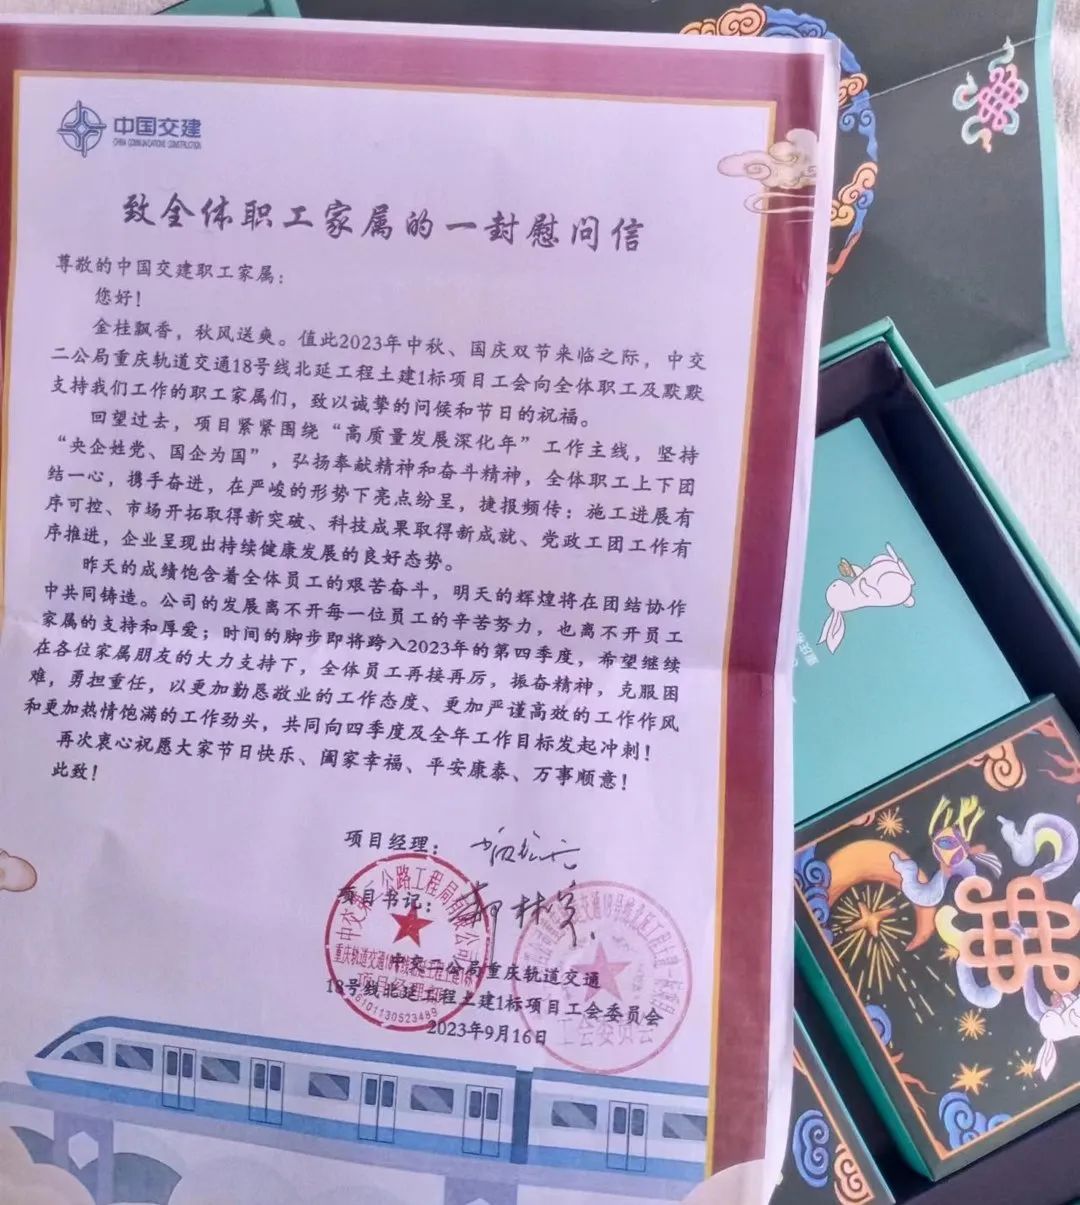 中国交建
CHINA COMMUNICATIONS CONSTRUCTION
致全体职工家属的一封慰问信
尊敬的中国交建职工家属：
您好！
金桂飘香，秋风送爽。值此2023年中秋、国庆双节来临之际，中交
二公局重庆轨道交通18号线北延工程土建1标项目工会向全体职工及默默
支持我们工作的职工家属们，致以诚挚的问候和节日的祝福。
回望过去，项目紧紧围绕“高质量发展深化年”工作主线，坚持
“央企姓党、国企为国”，弘扬奉献精神和奋斗精神，全体职工上下团
结一心，携手奋进，在严峻的形势下亮点纷呈，捷报频传：施工进展有
序可控、市场开拓取得新突破、科技成果取得新成就、党政工团工作有
序推进，企业呈现出持续健康发展的良好态势。
昨天的成绩饱含着全体员工的艰苦奋斗，明天的辉煌将在团结协作
中共同铸造。公司的发展离不开每一位员工的辛苦努力，也离不开员工
家属的支持和厚爱；时间的脚步即将跨入2023年的第四季度，希望继续
在各位家属朋友的大力支持下，全体员工再接再厉，振奋精神，克服困
难，勇担重任，以更加勤恳敬业的工作态度、更加严谨高效的工作作风
和更加热情饱满的工作劲头，共同向四季度及全年工作目标发起冲刺！
再次衷心祝愿大家节日快乐、阖家幸福、平安康泰、万事顺意！
此致！
项目经理：
项目书记：
中交二公局重庆轨道交通
18号线北延工程土建1标项目工会委员会
2023年9月16日
项目经理部
6101130523489
工会委员会